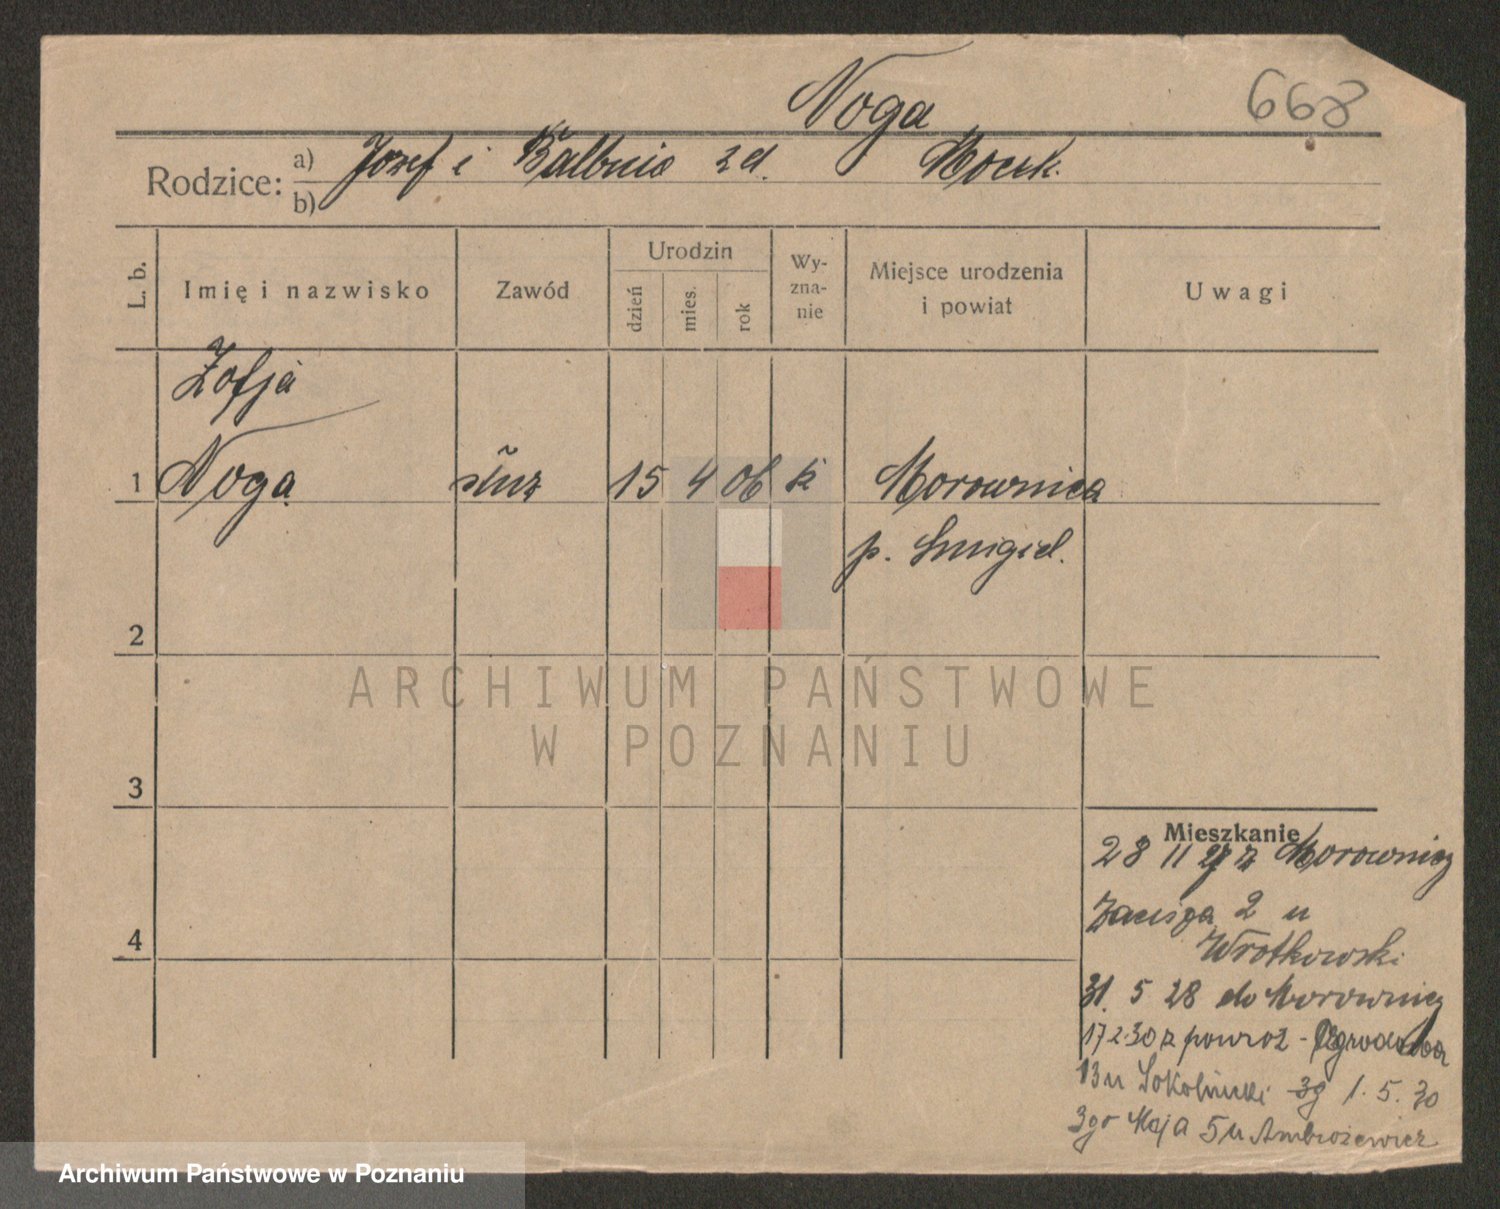 Noga
668
Rodzice: a) Józef i Balbina z d. Mocek.
b)
L. b.
Imię i nazwisko
Zawód
Urodzin
dzień
mies.
rok
Wy-
zna-
nie
Miejsce urodzenia
i powiat
Uwagi
Zofja
1 Noga służ 15 4 06 k Morownica
p. Smigiel.
2
3
4
Mieszkanie
28 11 27 z Morownicy
Zacisza 2 u
Wrotkowski
31. 5 28 do Morownicy
17 2.30 z powroź - Ogrodowa
13 u Sokolnicki 1. 5. 30
3go Maja 5 u Ambrożewicz
ARCHIWUM PAŃSTWOWE
W POZNANIU
Archiwum Państwowe w Poznaniu